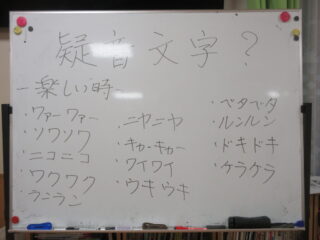 疑音文字?
-楽しい時-
・ワァーワァー
・ソワソワ
・ニコニコ
・ワクワク
・ランラン
・ニヤニヤ
・キャーキャー
・ワイワイ
・ウキウキ
・ベタベタ
・ルンルン
・ドキドキ
・ケラケラ